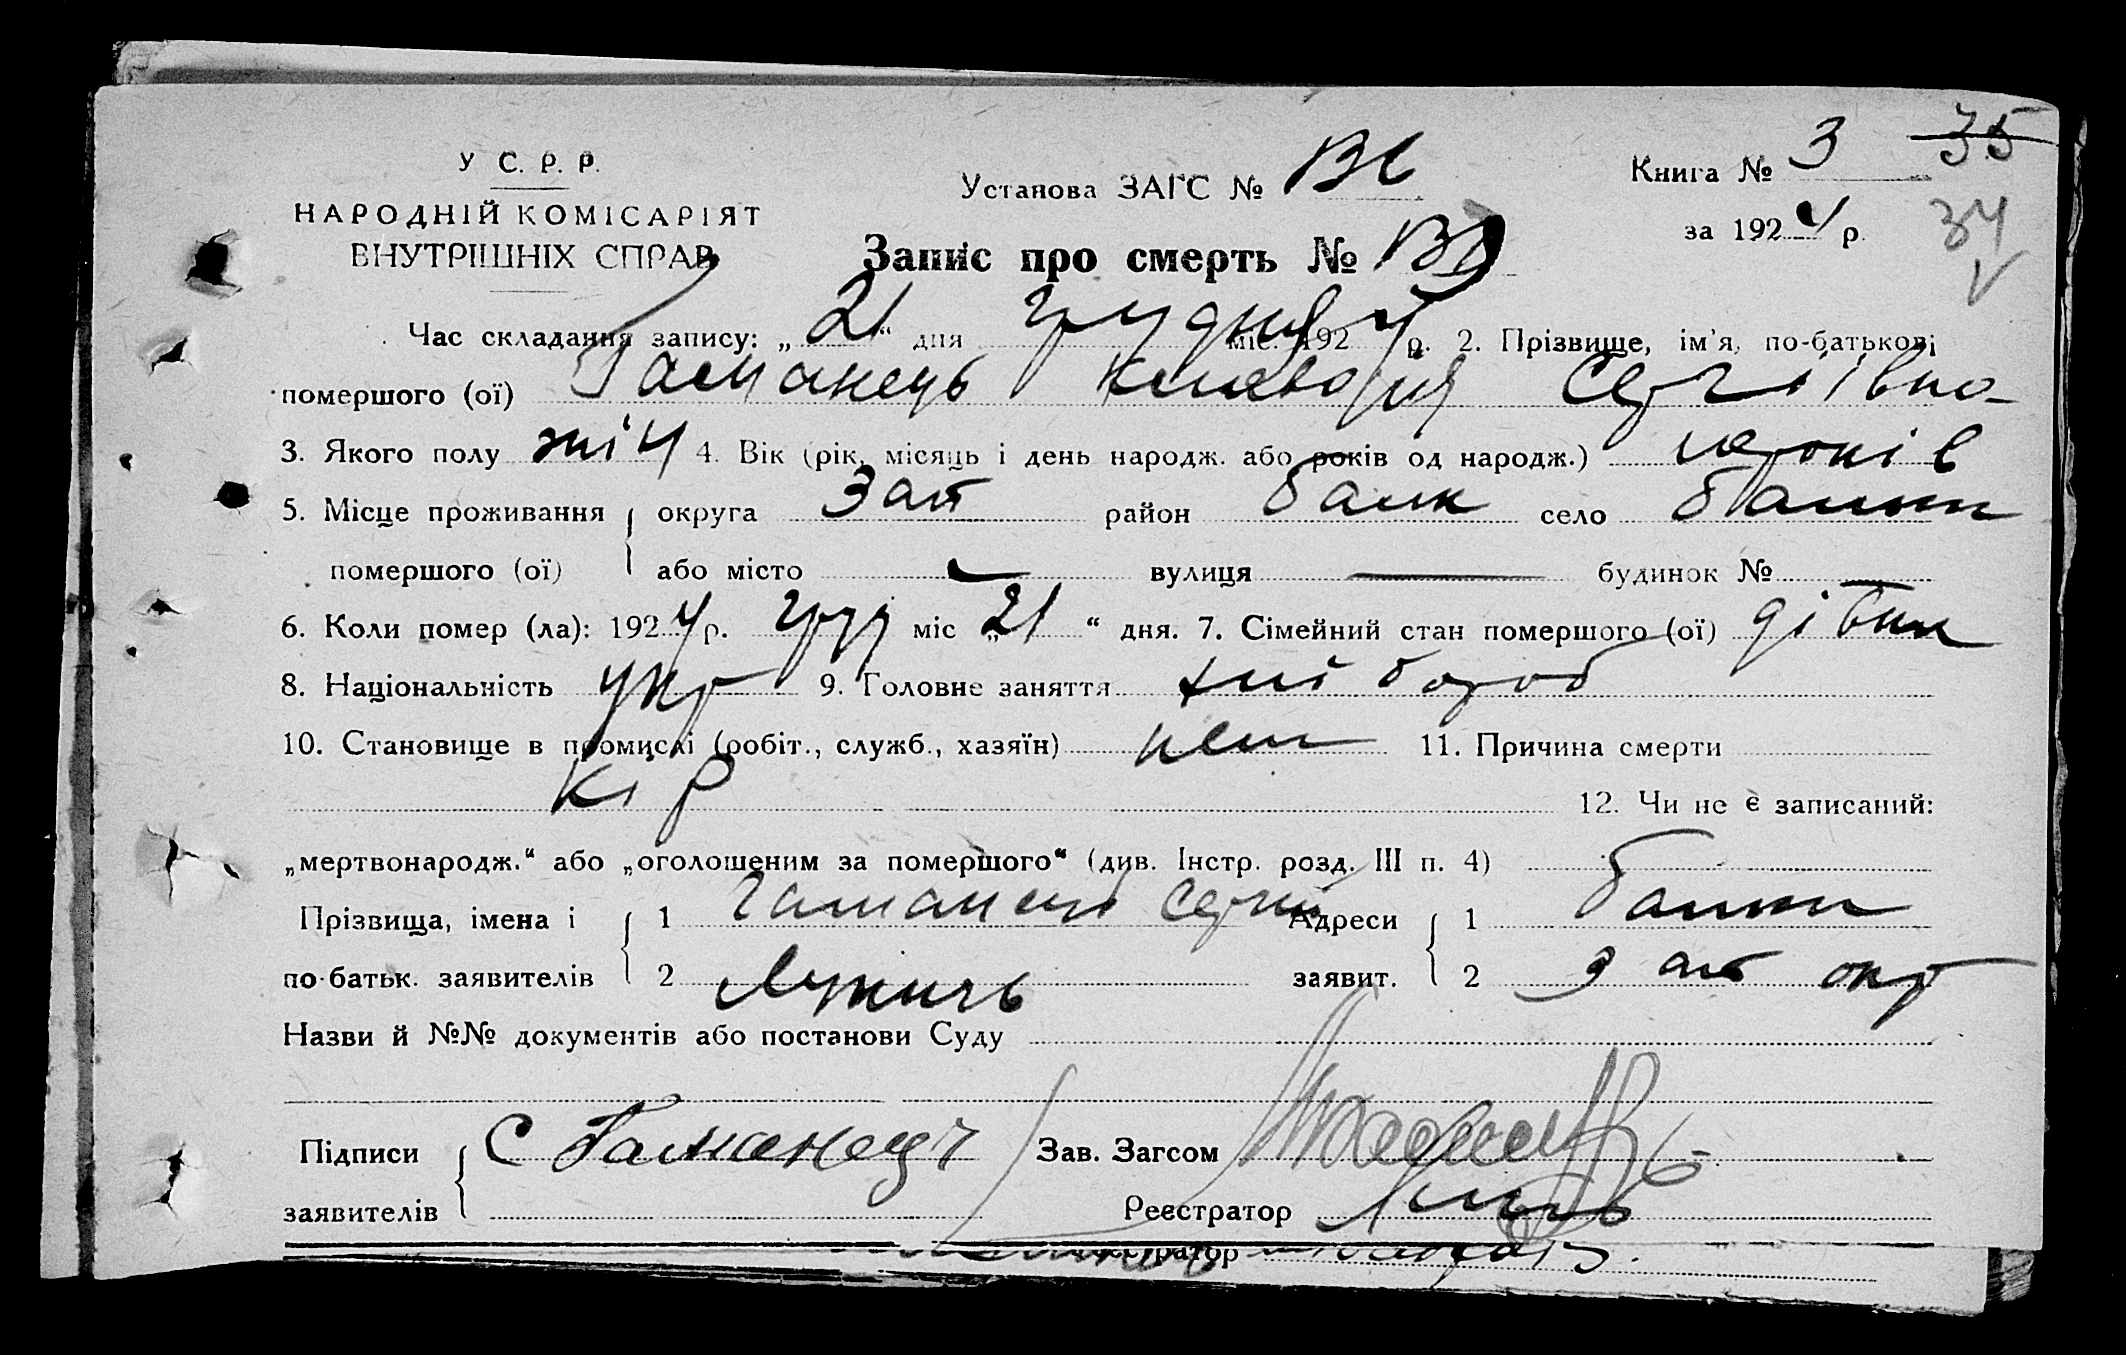 У С. Р. Р.
НАРОДНІЙ КОМІСАРІЯТ
ВНУТРІШНІХ СПРАВ
Установа ЗАГС №
Книга № 3 35
за 1924 р. 34
Запис про смерть №
Час складання запису: „21“ дня грудня міс. 1924 р. 2. Прізвище, ім'я, по-батькові
помершого (ої) Гаманець Клавдія Сергіївна
3. Якого полу жіч 4. Вік (рік, місяць і день народж. або років од народж.) років
5. Місце проживання округа Зап район Балк село Балки
помершого (ої) або місто — вулиця — будинок № —
6. Коли помер (ла): 1924 р. груд міс „21“ дня. 7. Сімейний стан помершого (ої)
8. Національність укр 9. Головне заняття хлібороб
10. Становище в промислі (робіт., служб., хазяїн) 11. Причина смерти
кір
12. Чи не є записаний:
„мертвонародж.“ або „оголошеним за помершого“ (див. Інстр. розд. III п. 4)
Прізвища, імена і 1 Гаманець Сергій Адреси 1 Балки
по-батьк. заявителів 2 заявит. 2 Зап окр
Назви й №№ документів або постанови Суду
Підписи С Гаманець Зав. Загсом
заявителів Реєстратор